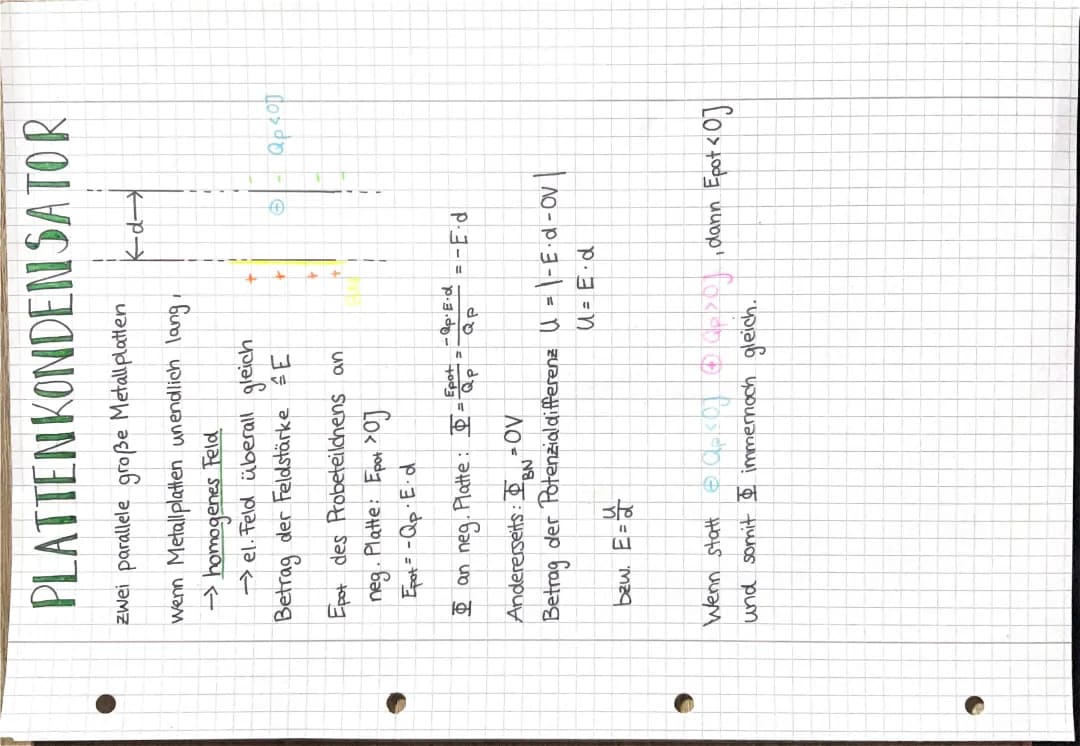 PLATTENKONDENSATOR
zwei parallele große Metallplatten
←d→
wenn Metallplatten unendlich lang,
→ homogenes Feld
→ el. Feld überall gleich
Betrag der Feldstärke ≙ E
+ + + +
⊖ - - - - Qp<0J
BN
Epot des Probeteilchens an
neg. Platte: Epot >0J
Epot = -Qp·E·d
Φ an neg. Platte: Φ = Epot/Qp = -Qp·E·d/Qp = -E·d
Andererseits: Φ_BN = 0V
Betrag der Potenzialdifferenz U = |-E·d - 0V|
U = E·d
bzw. E = U/d
Wenn statt ⊖ Qp<0J ⊕ Qp>0J, dann Epot<0J
und somit Φ immernoch gleich.